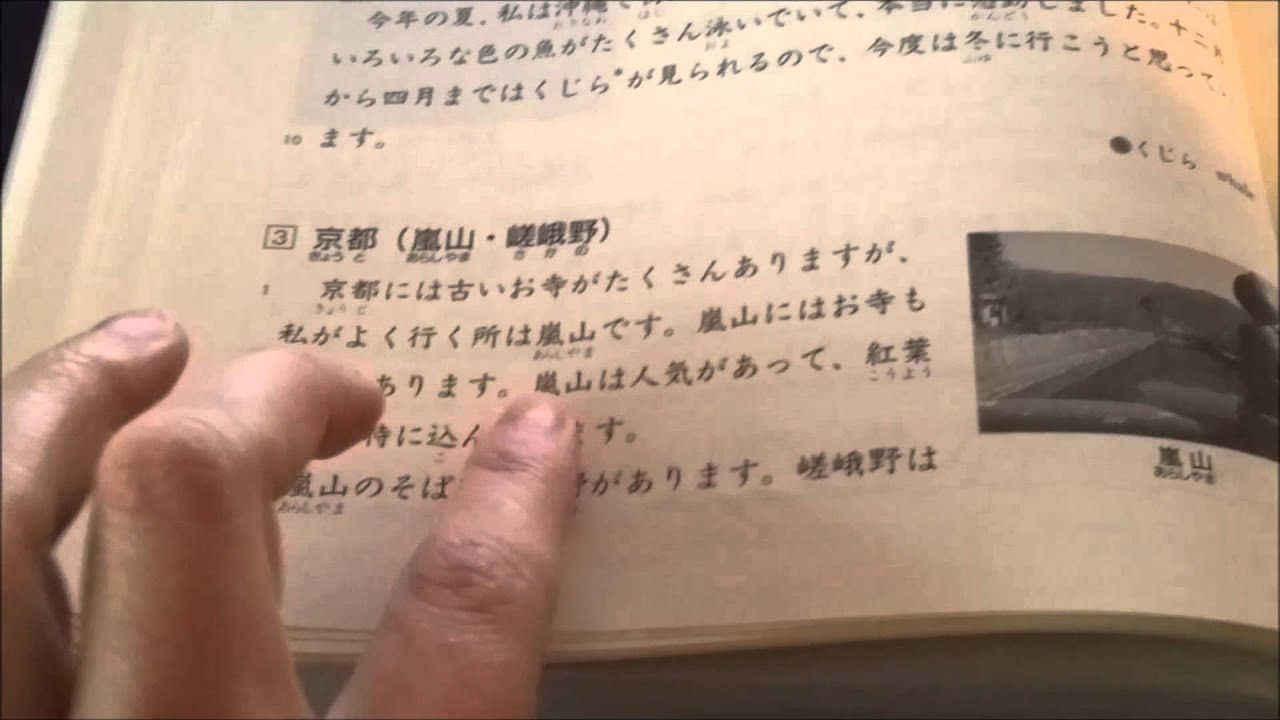 今年の夏、私は沖縄で
おきなわ
いろいろな色の魚がたくさん泳いでいて、本当に感動しました。十二月
およ かんどう
から四月まではくじら*が見られるので、今度は冬に行こうと思って、
ふゆ
10 ます。
●くじら whale
3 京都（嵐山・嵯峨野）
きょうと あらしやま さがの
1 京都には古いお寺がたくさんありますが、
きょうと
私がよく行く所は嵐山です。嵐山にはお寺も
あらしやま
あります。嵐山は人気があって、紅葉
こうよう
に込ん ます。
こ
嵐山のそば があります。嵯峨野は
あらしやま
嵐山
あらしやま